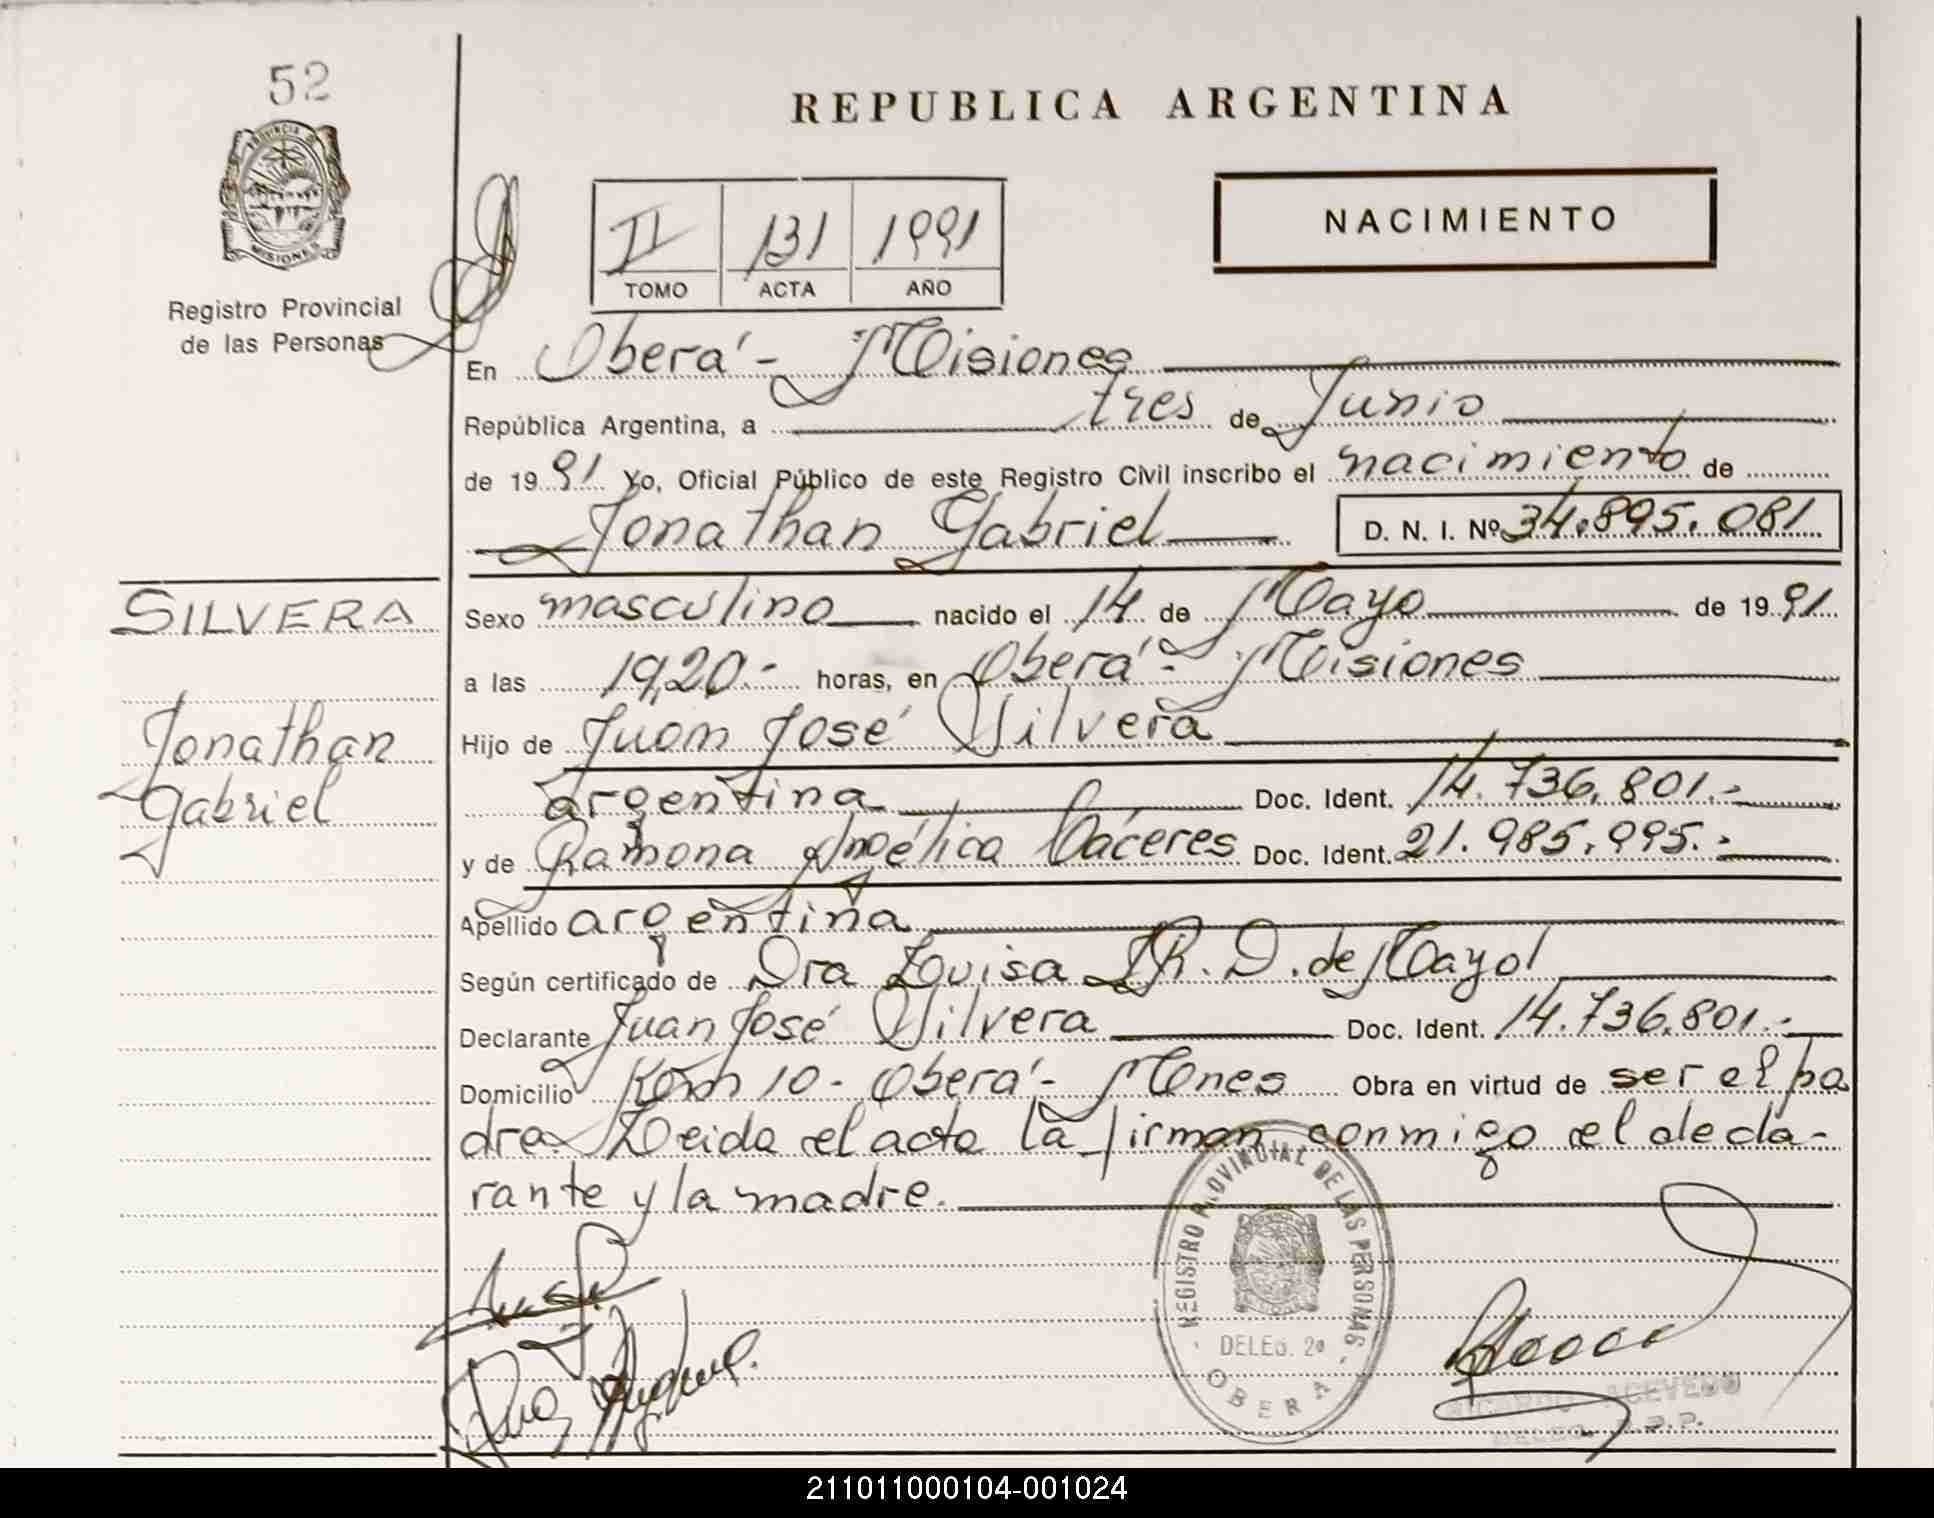 52
REPUBLICA ARGENTINA
PROVINCIA DE
MISIONES
Registro Provincial
de las Personas
II 131 1991
TOMO ACTA AÑO
NACIMIENTO
En Oberá - Misiones
República Argentina, a tres de Junio
de 1991 Yo, Oficial Público de este Registro Civil inscribo el nacimiento de
Jonathan Gabriel D. N. I. Nº 34.895.081
SILVERA
Jonathan
Gabriel
Sexo masculino nacido el 14 de Mayo de 1991
a las 19,20.- horas, en Oberá - Misiones
Hijo de Juan José Silvera
argentina Doc. Ident. 14.736.801.-
y de Ramona Angélica Cáceres Doc. Ident. 21.985.995.-
Apellido argentina
Según certificado de Dra Luisa R. D. de Mayol
Declarante Juan José Silvera Doc. Ident. 14.736.801.-
Domicilio Km 10 - Oberá - Mones Obra en virtud de ser el pa
dre. Leida el acta la firman conmigo el decla-
rante y la madre.
REGISTRO PROVINCIAL DE LAS PERSONAS
DELEG. 2ª
OBERA
RICARDO ACEVEDO
DELEG. R.P.P.
211011000104-001024